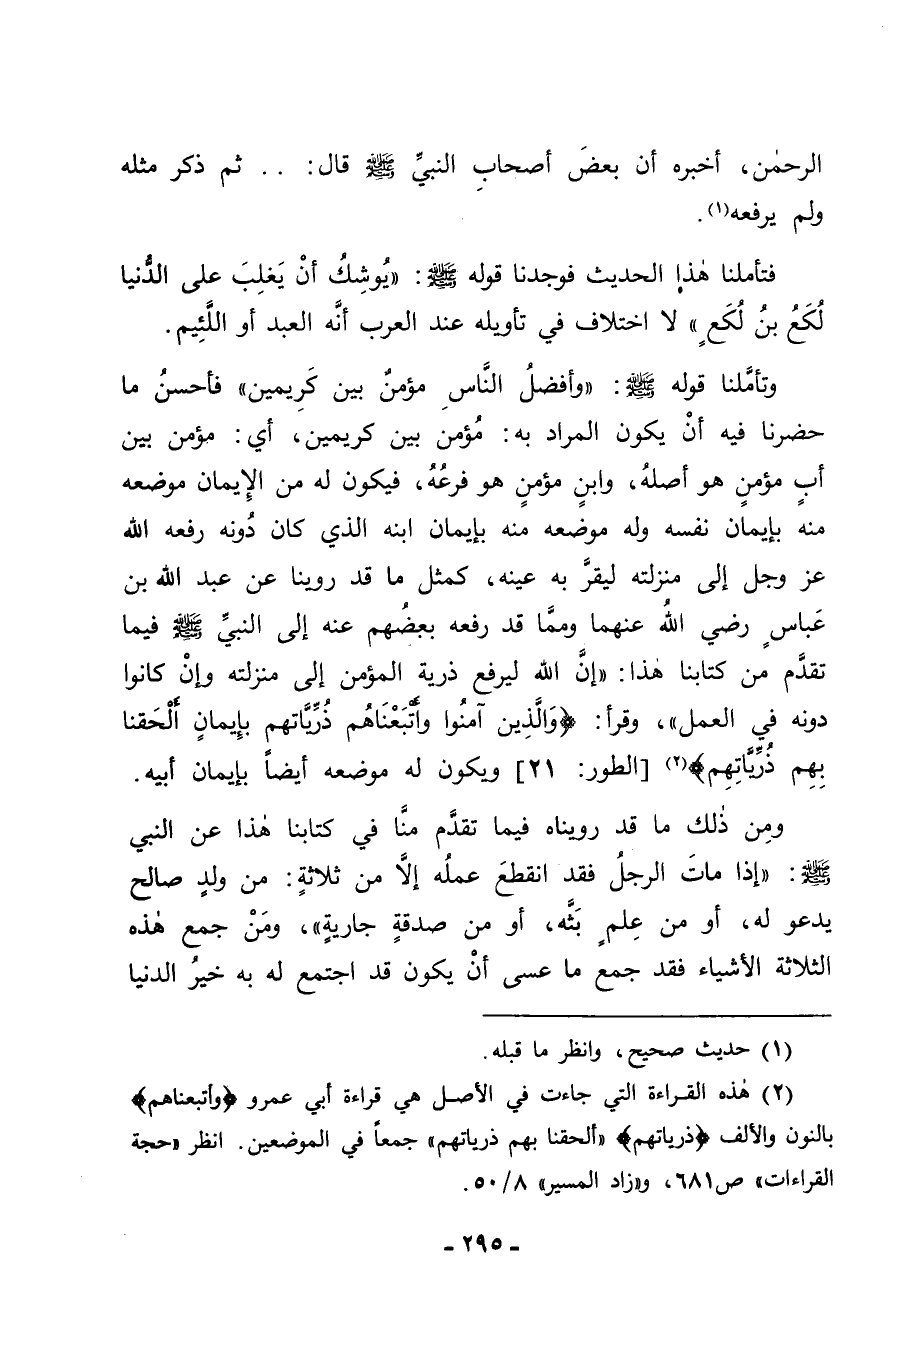 الرحمٰن، أخبره أن بعضَ أصحابِ النبيِّ ﷺ قال: . . ثم ذكر مثله
ولم يرفعه(١).
فتأملنا هٰذا الحديث فوجدنا قوله ﷺ: «يُوشِكُ أنْ يَغلِبَ على الدُّنيا
لُكَعُ بنُ لُكَعٍ» لا اختلاف في تأويله عند العرب أنَّه العبد أو اللَّئِيم.
وتأمَّلنا قوله ﷺ: «وأفضلُ النَّاسِ مؤمنٌ بين كَرِيمين» فأحسنُ ما
حضرنا فيه أنْ يكون المراد به: مُؤمن بين كريمين، أي: مؤمن بين
أبٍ مؤمنٍ هو أصلهُ، وابنٍ مؤمنٍ هو فرعُهُ، فيكون له من الإِيمان موضعه
منه بإيمان نفسه وله موضعه منه بإيمان ابنه الذي كان دُونه رفعه الله
عز وجل إلى منزلته ليقرَّ به عينه، كمثل ما قد روينا عن عبد الله بن
عَباسٍ رضي اللهُ عنهما وممَّا قد رفعه بعضُهم عنه إلى النبيِّ ﷺ فيما
تقدَّم من كتابنا هٰذا: «إنَّ الله ليرفع ذرية المؤمن إلى منزلته وإنْ كانوا
دونه في العمل»، وقرأ: ﴿وَالَّذِين آمنُوا وأَتْبَعْنَاهُم ذُرِّيَّاتهم بإِيمانٍ أَلْحَقنا
بِهِم ذُرِّيَّاتِهِم﴾(٢) [الطور: ٢١] ويكون له موضعه أيضاً بإيمان أبيه.
ومِن ذٰلك ما قد رويناه فيما تقدَّم منَّا في كتابنا هٰذا عن النبي
ﷺ: «إذا ماتَ الرجلُ فقد انقطعَ عملُه إلاَّ من ثلاثةٍ: من ولدٍ صالح
يدعو له، أو من عِلمٍ بَثَّه، أو من صدقةٍ جاريةٍ»، ومَنْ جمع هٰذه
الثلاثة الأشياء فقد جمع ما عسى أنْ يكون قد اجتمع له به خيرُ الدنيا
(١) حديث صحيح، وانظر ما قبله.
(٢) هٰذه القراءة التي جاءت في الأصل هي قراءة أبي عمرو ﴿وأتبعناهم﴾
بالنون والألف ﴿ذرياتهم﴾ «ألحقنا بهم ذرياتهم» جمعاً في الموضعين. انظر «حجة
القراءات» ص٦٨١، و«زاد المسير» ٥٠/٨.
- ٢٩٥ -